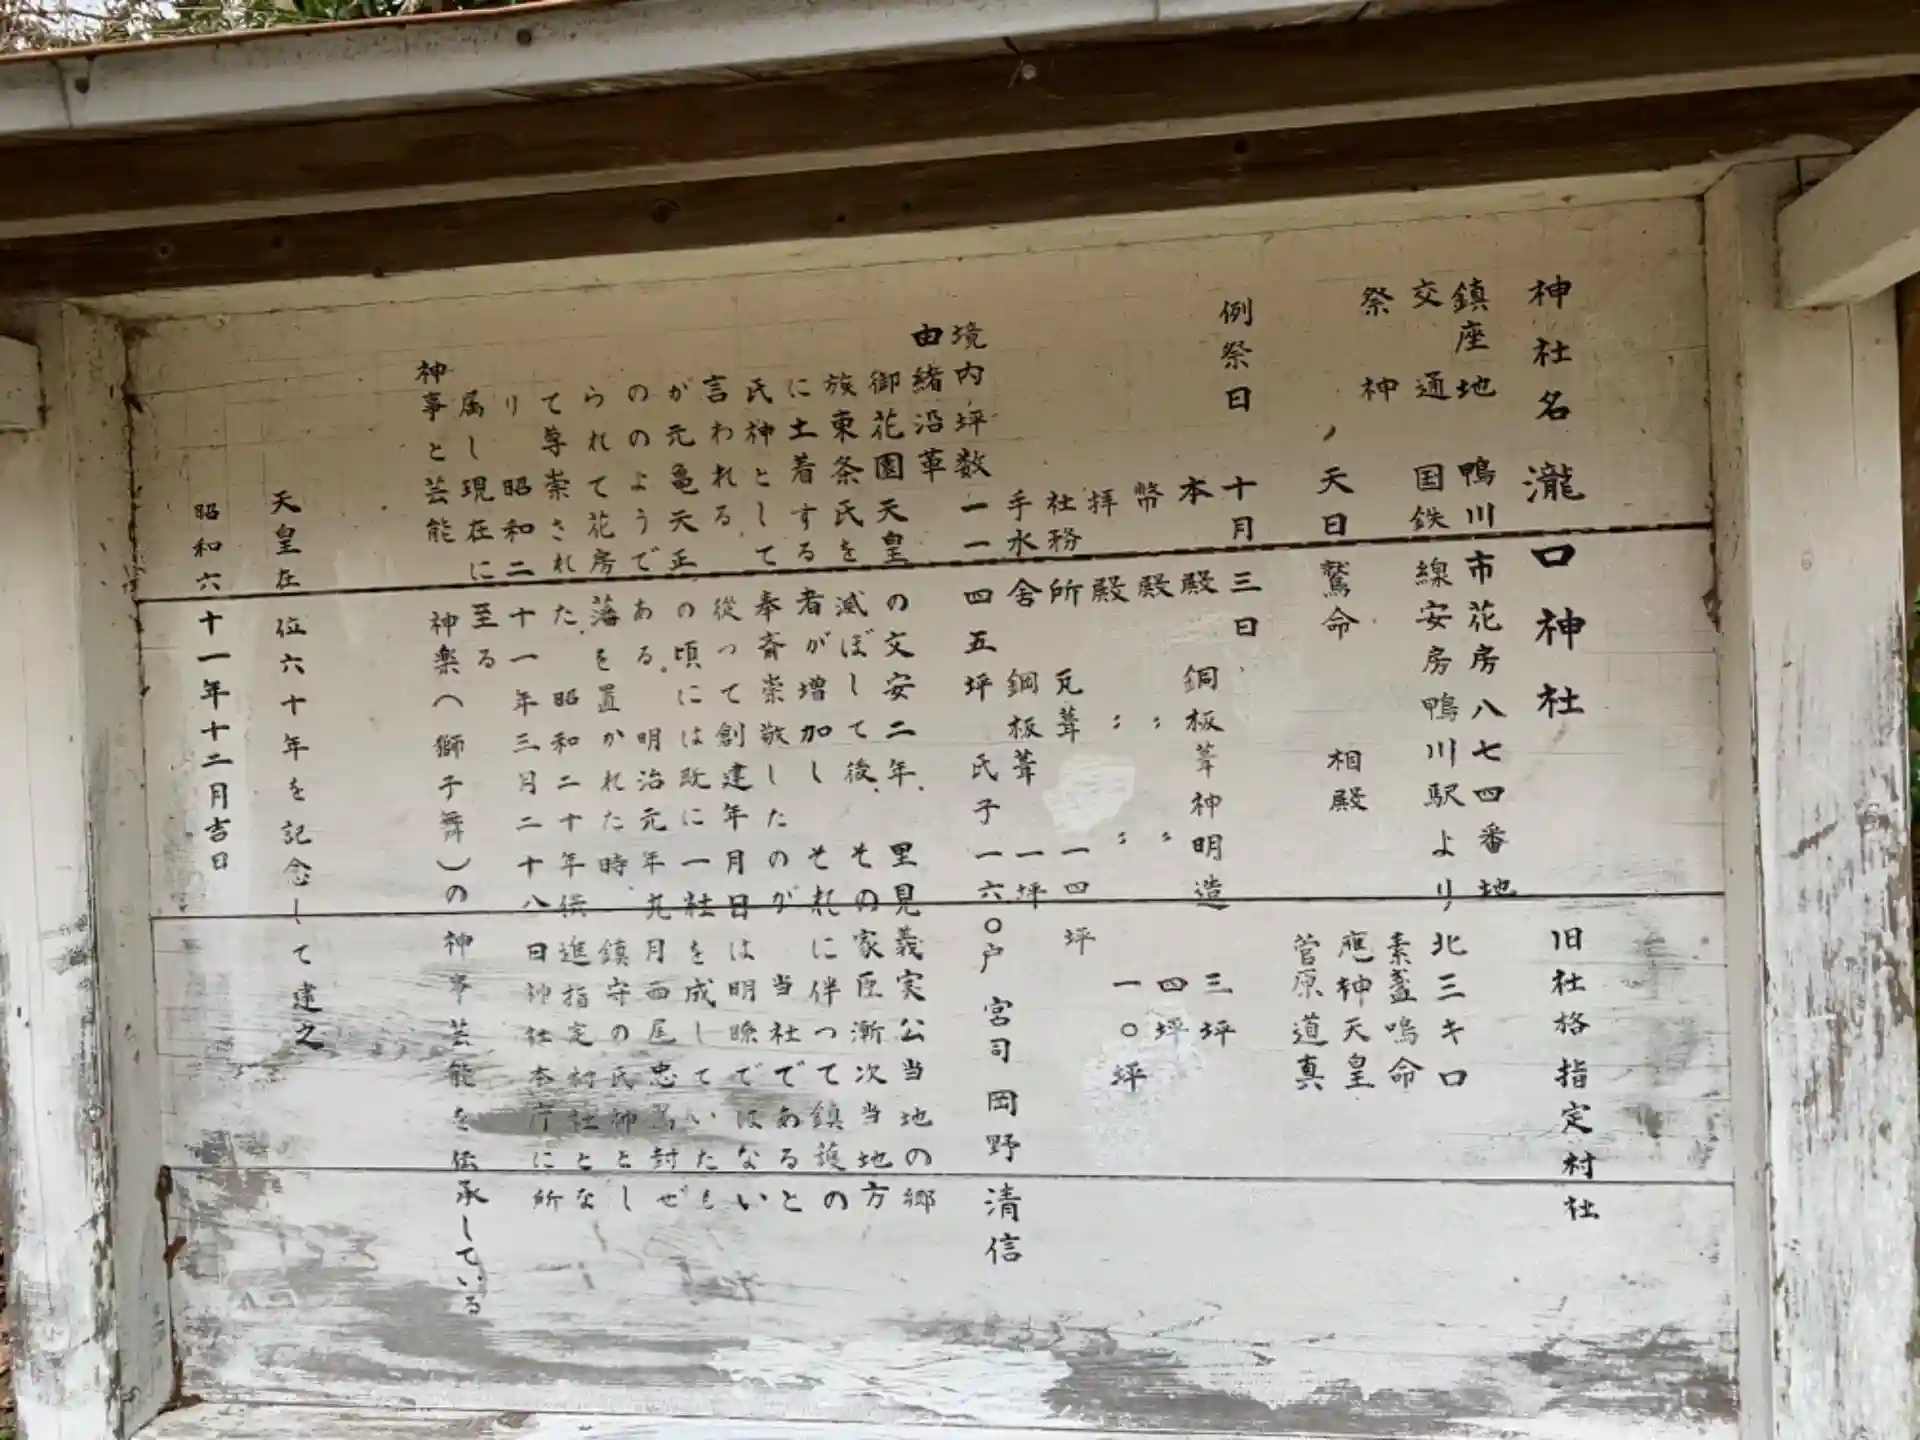 神社名 瀧口神社 旧社格指定村社
鎮座地 鴨川市花房八七四番地
交通 国鉄線安房鴨川駅より北三キロ
祭神 天日鷲命 相殿 素盞嗚命
應神天皇
菅原道真
例祭日 十月三日
本殿 銅板葺神明造 三坪
幣殿 〃 〃 四坪
拝殿 〃 〃 一〇坪
社務所 瓦葺 一四坪
手水舎 鋼板葺 一坪
境内坪数 一一四五坪 氏子一六〇戸 宮司 岡野清信
由緒沿革
御花園天皇の文安二年、里見義実公当地の郷
族東条氏を滅ぼして後、その家臣漸次当地方
に土着する者が増加し それに伴って鎮護の
氏神として奉斉崇敬したのが 当社であると
言われる 従って創建年月日は明瞭ではない
が元亀天正の頃には既に一社を成していたも
ののようである。明治元年九月西尾忠篤封ぜ
られて花房藩を置かれた時 鎮守の氏神とし
て尊崇された、昭和二十年供進指定村社とな
り 昭和二十一年三月二十八日神社本庁に所
属し現在に至る
神事と芸能 神楽(獅子舞)の神事芸能を伝承している
天皇在位六十年を記念して建之
昭和六十一年十二月吉日